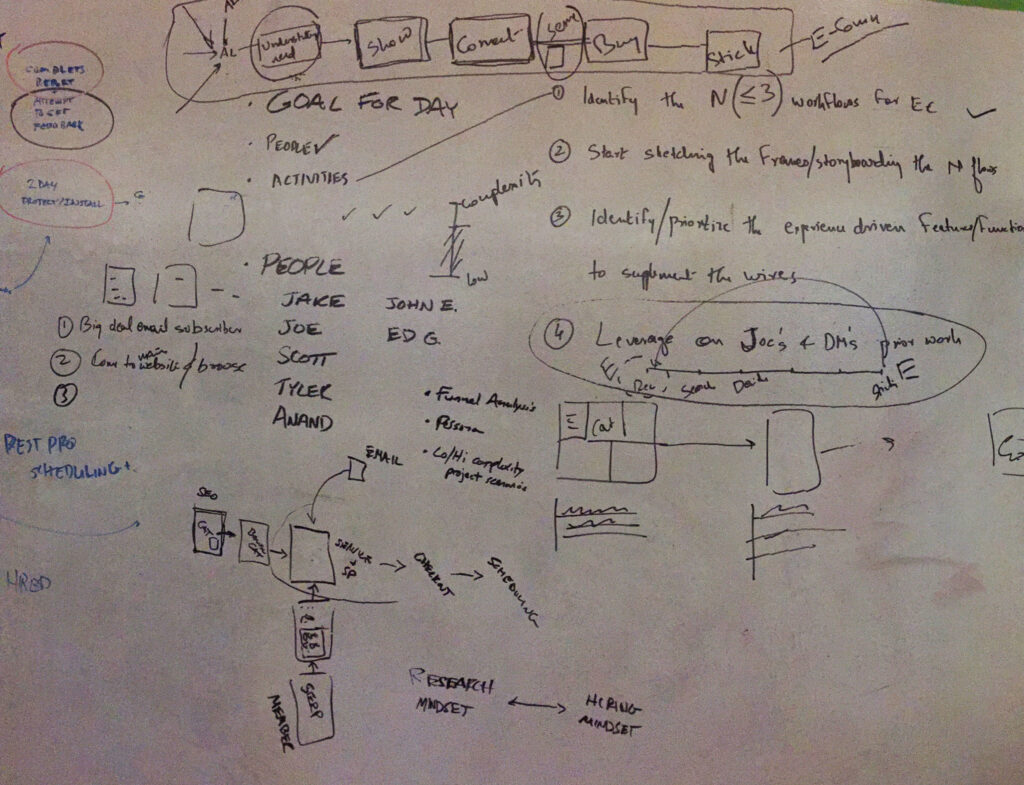 AL
AL
Understanding
need
Show
Convert
Serve
Buy
Stick
E-Comm
COMPLETE
REPORT
ATTEMPT
TO GET
FEEDBACK
2 DAY
PROTECT/INSTALL
• GOAL FOR DAY
• PEOPLE ✓
• ACTIVITIES
✓ ✓ ✓
Complexity
Low
① Identify the N(≤3) workflows for EC ✓
② Start sketching the Frames/storyboarding the N flows
③ Identify/prioritize the experience driven Features/Function
to suplement the wires
④ Leverage on Joe's & DM's prior work
E
Search
Decide
E
E
Cat
• PEOPLE
JAKE
JOE
SCOTT
TYLER
ANAND
JOHN E.
ED G.
① Big deal email subscriber
② Come to main website / browse
③
• Funnel Analysis
• Persona
• Lo/Hi complexity
project scenarios
BEST PRO
SCHEDULING +
HRED
EMAIL
SEO
CAT
SERVICE
+
SP
CHECKOUT
SCHEDULING
SERP
MEMBER
RESEARCH
MINDSET
HIRING
MINDSET